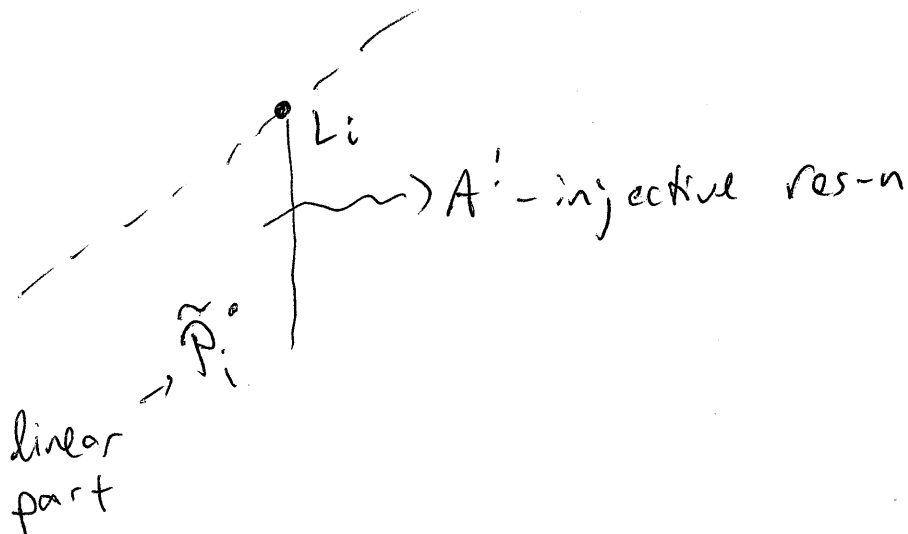 Li
A! - injective res-n
P̃i•
linear
part